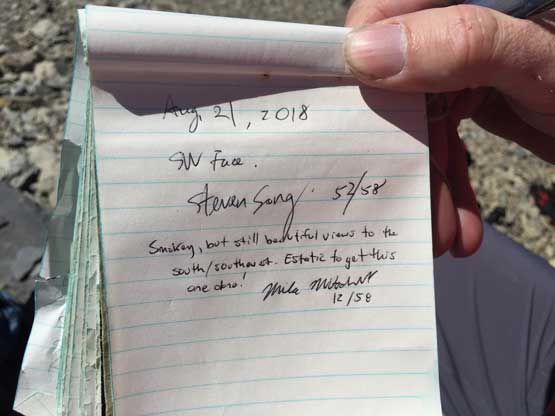 Aug. 21, 2018
SW Face.
Steven Song 52/58
Smokey, but still beautiful views to the
south/southeast. Estatic to get this
one done!
12/58